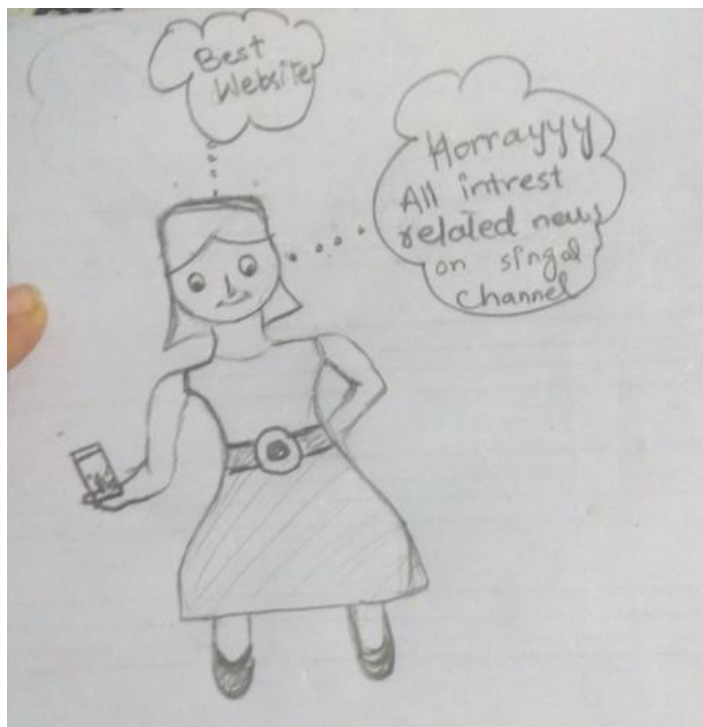 Best
Website
Horrayyy
All intrest
related news
on singal
channel